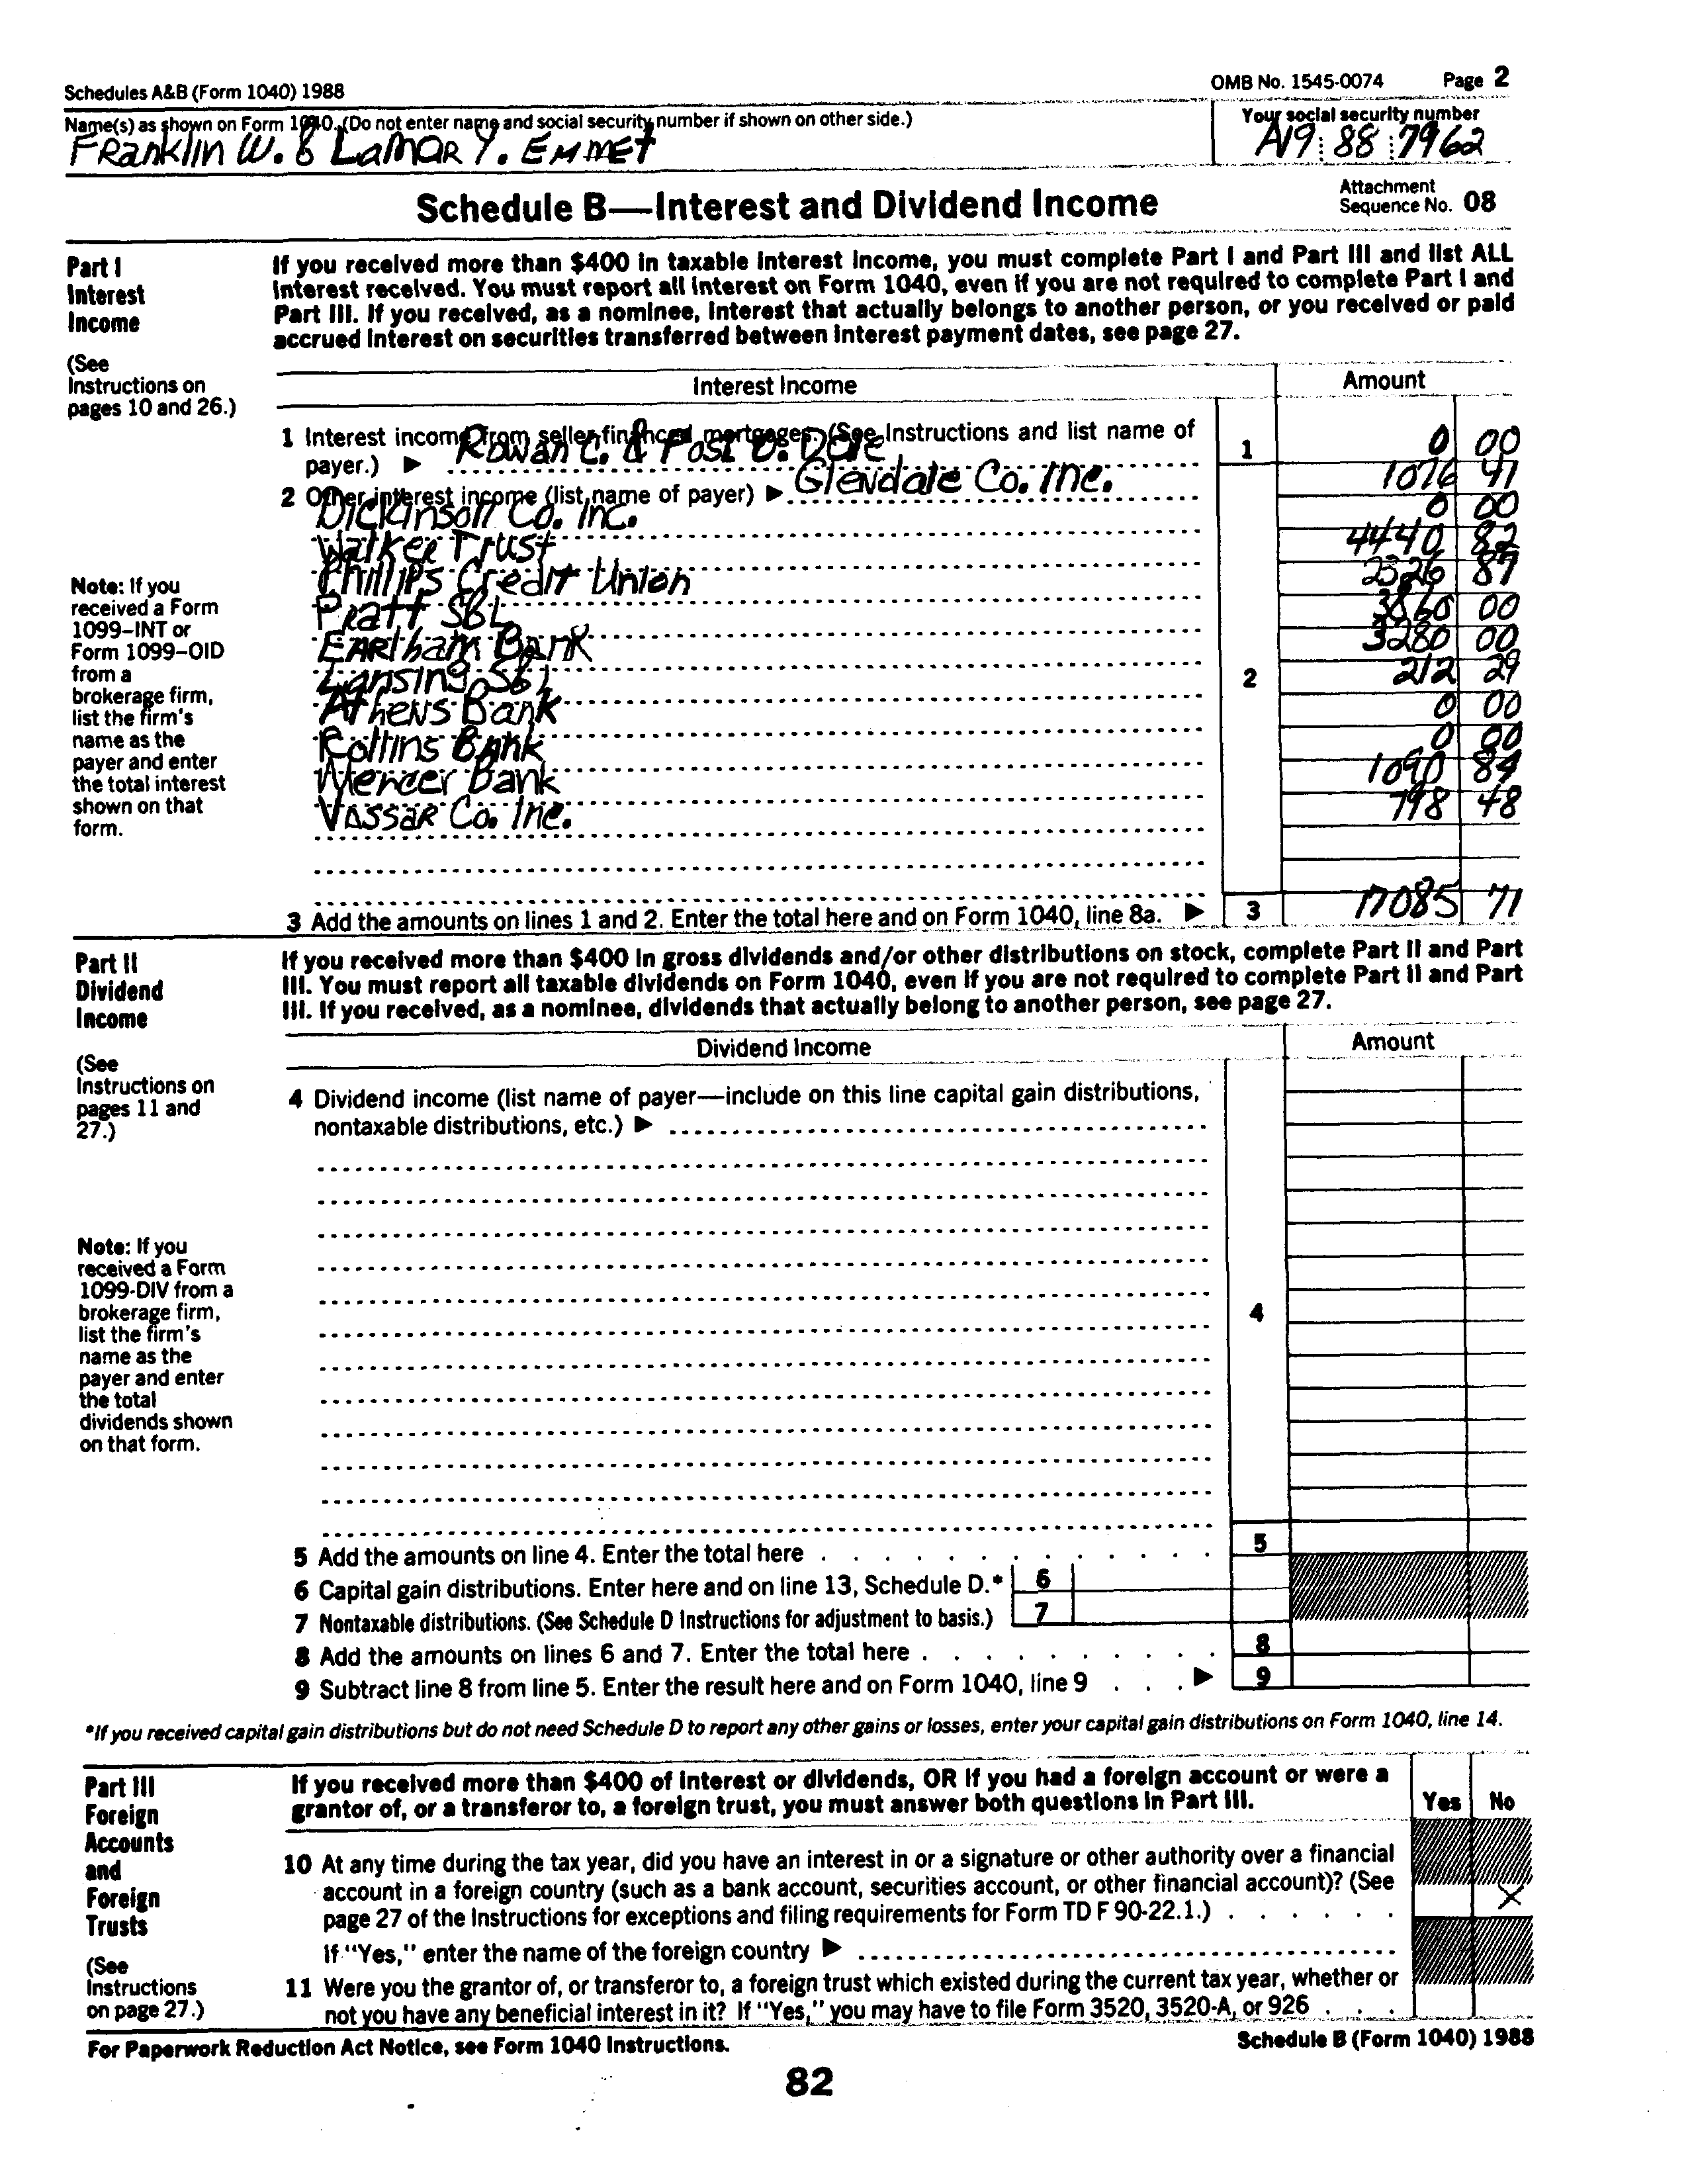 Schedules A&B (Form 1040) 1988 OMB No. 1545-0074 Page 2
Name(s) as shown on Form 1040. (Do not enter name and social security number if shown on other side.) Your social security number
Franklin W. & Lamar Y. Emmet A19 88 7962
Schedule B—Interest and Dividend Income Attachment Sequence No. 08
Part I
Interest
Income
(See
Instructions on
pages 10 and 26.)
If you received more than $400 in taxable interest income, you must complete Part I and Part III and list ALL
interest received. You must report all interest on Form 1040, even if you are not required to complete Part I and
Part III. If you received, as a nominee, interest that actually belongs to another person, or you received or paid
accrued interest on securities transferred between interest payment dates, see page 27.
Interest Income Amount
1 Interest income from seller-financed mortgages. (See Instructions and list name of
payer.) ▶ Rowan C. & Post O. Dore 1 0 00
2 Other interest income (list name of payer) ▶ Glendale Co. Inc. 1076 41
Dickinson Co. Inc. 0 00
Walker Trust 4440 82
Phillips Credit Union 2326 87
Pratt S&L 3860 00
Earlham Bank 3280 00
Lansing S&L 2 212 29
Athens Bank 0 00
Rollins Bank 0 00
Mercer Bank 1090 84
Vassar Co. Inc. 798 48
Note: If you
received a Form
1099–INT or
Form 1099–OID
from a
brokerage firm,
list the firm's
name as the
payer and enter
the total interest
shown on that
form.
3 Add the amounts on lines 1 and 2. Enter the total here and on Form 1040, line 8a. ▶ 3 17085 71
Part II
Dividend
Income
(See
Instructions on
pages 11 and
27.)
If you received more than $400 in gross dividends and/or other distributions on stock, complete Part II and Part
III. You must report all taxable dividends on Form 1040, even if you are not required to complete Part II and Part
III. If you received, as a nominee, dividends that actually belong to another person, see page 27.
Dividend Income Amount
4 Dividend income (list name of payer—include on this line capital gain distributions,
nontaxable distributions, etc.) ▶
Note: If you
received a Form
1099-DIV from a
brokerage firm,
list the firm's
name as the
payer and enter
the total
dividends shown
on that form.
4
5 Add the amounts on line 4. Enter the total here 5
6 Capital gain distributions. Enter here and on line 13, Schedule D.* 6
7 Nontaxable distributions. (See Schedule D Instructions for adjustment to basis.) 7
8 Add the amounts on lines 6 and 7. Enter the total here 8
9 Subtract line 8 from line 5. Enter the result here and on Form 1040, line 9 ▶ 9
*If you received capital gain distributions but do not need Schedule D to report any other gains or losses, enter your capital gain distributions on Form 1040, line 14.
Part III
Foreign
Accounts
and
Foreign
Trusts
(See
Instructions
on page 27.)
If you received more than $400 of interest or dividends, OR if you had a foreign account or were a
grantor of, or a transferor to, a foreign trust, you must answer both questions in Part III. Yes No
10 At any time during the tax year, did you have an interest in or a signature or other authority over a financial
account in a foreign country (such as a bank account, securities account, or other financial account)? (See
page 27 of the Instructions for exceptions and filing requirements for Form TD F 90-22.1.) X
If "Yes," enter the name of the foreign country ▶
11 Were you the grantor of, or transferor to, a foreign trust which existed during the current tax year, whether or
not you have any beneficial interest in it? If "Yes," you may have to file Form 3520, 3520-A, or 926
For Paperwork Reduction Act Notice, see Form 1040 Instructions. Schedule B (Form 1040) 1988
82